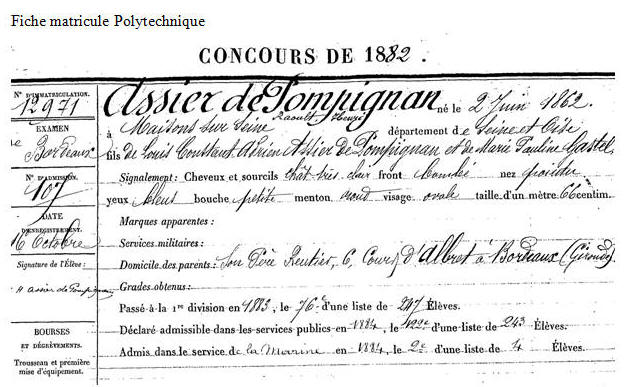 Fiche matricule Polytechnique
CONCOURS DE 1882.
N° D'IMMATRICULATION.
12971
EXAMEN
de
Bordeaux
N° D'ADMISSION.
107
DATE
D'ENREGISTREMENT.
16 Octobre
Signature de l'Élève :
H assier de Pompignan
BOURSES
ET DÉGRÈVEMENTS.
Trousseau et première
mise d'équipement.
Assier de Pompignan né le 2 Juin 1862.
Raoult Henri
à Maisons sur Seine département de Seine et Oise
fils de Louis Constant Adrien Assier de Pompignan et de Marie Pauline Castel
Signalement: Cheveux et sourcils chât. très clair front bombé nez pointu
yeux bleus bouche petite menton rond visage ovale taille d'un mètre 66 centim.
Marques apparentes :
Services militaires :
Domicile des parents: Son Père Rentier, 6, Cours d'Albret à Bordeaux (Gironde)
Grades obtenus:
Passé à la 1re division en 1883, le 76e d'une liste de 247 Élèves.
Déclaré admissible dans les services publics en 1884, le 122e d'une liste de 243 Élèves.
Admis dans le service de la Marine en 1884, le 2e d'une liste de 4 Élèves.